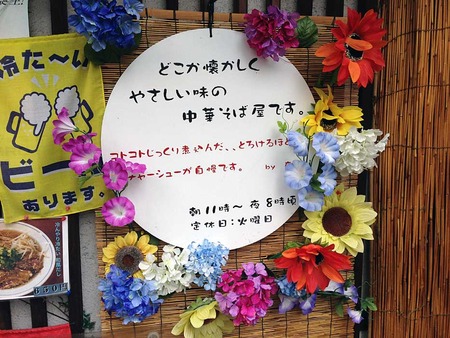 どこか懐かしく
やさしい味の
中華そば屋です。
コトコトじっくり煮込んだ、、とろけるほど
チャーシューが自慢です。 by
朝11時〜夜8時頃
定休日:火曜日
冷た〜い
ビール
あります。